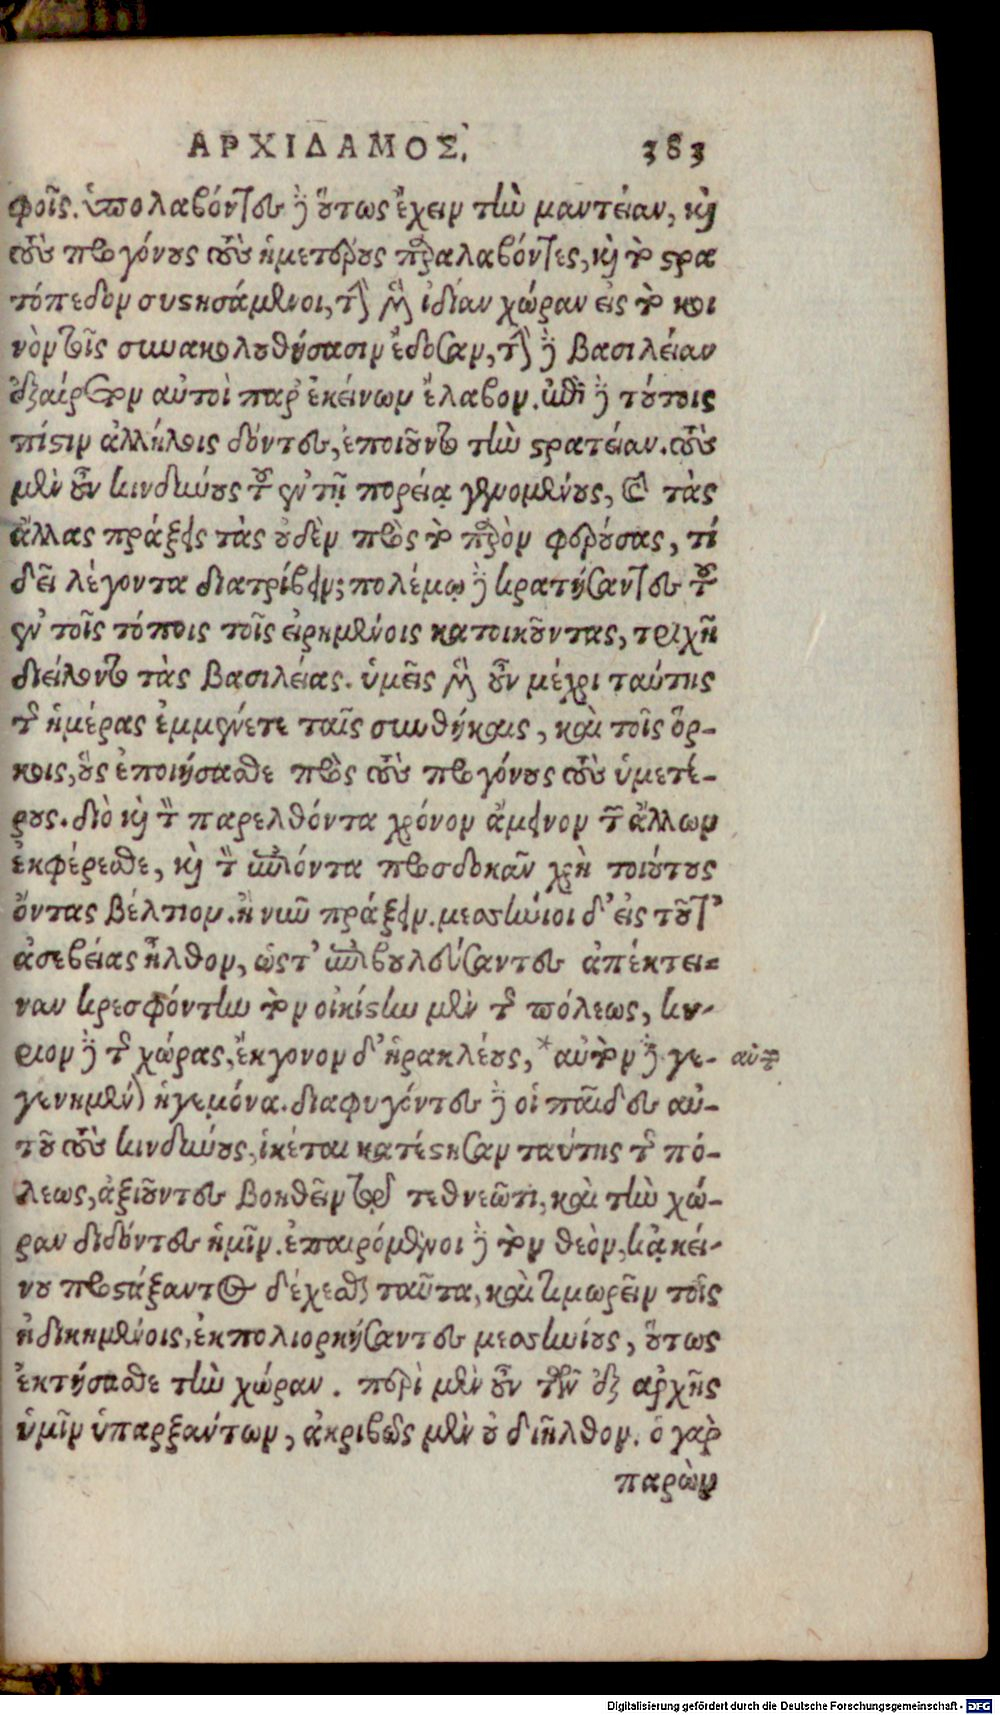 ΑΡΧΙΔΑΜΟΣ. 383
φοῖς. ὑπολαβόντες δὲ οὕτως ἔχειν τὴν μαντείαν, καὶ
τοὺς προγόνους τοὺς ἡμετέρους παραλαβόντες, καὶ τὸ στρα
τόπεδον συστησάμενοι, τὴν μὲν ἰδίαν χώραν εἰς τὸ κοι
νὸν τοῖς συνακολουθήσασιν ἔδοσαν, τὴν δὲ βασιλείαν
ἐξαίρετον αὐτοὶ παρ' ἐκείνων ἔλαβον. ἐπὶ δὲ τούτοις
πίστιν ἀλλήλοις δόντες, ἐποιοῦντο τὴν στρατείαν. τοὺς
μὲν οὖν κινδύνους τοὺς ἐν τῇ πορείᾳ γενομένους, καὶ τὰς
ἄλλας πράξεις τὰς οὐδὲν πρὸς τὸ παρὸν φερούσας, τί
δεῖ λέγοντα διατρίβειν; πολέμῳ δὲ κρατήσαντες τοὺς
ἐν τοῖς τόποις τοῖς εἰρημένοις κατοικοῦντας, τριχῆ
διείλοντο τὰς βασιλείας. ὑμεῖς μὲν οὖν μέχρι ταύτης
τῆς ἡμέρας ἐμμένετε ταῖς συνθήκαις, καὶ τοῖς ὅρ-
κοις, οὓς ἐποιήσασθε πρὸς τοὺς προγόνους τοὺς ὑμετέ-
ρους. διὸ καὶ τὸν παρελθόντα χρόνον ἄμεινον τῶν ἄλλων
ἐκφέρεσθε, καὶ τὸν ἐπιόντα προσδοκᾶν χρὴ τοιούτους
ὄντας βέλτιον. ἢ νῦν πράξειν. μεσσήνιοι δ' εἰς τοῦτ'
ἀσεβείας ἦλθον, ὥστ' ἐπιβουλεύσαντες ἀπέκτει-
ναν κρεσφόντην τὸν οἰκιστὴν μὲν τῆς πόλεως, κύ-
ριον δὲ τῆς χώρας, ἔκγονον δ' ἡρακλέους, *αὐτὸν δὲ γε- αὐτῶν
γενημένον ἡγεμόνα. διαφυγόντες δὲ οἱ παῖδες αὐ-
τοῦ τοὺς κινδύνους, ἱκέται κατέστησαν ταύτης τῆς πό-
λεως, ἀξιοῦντες βοηθεῖν τῷ τεθνεῶτι, καὶ τὴν χώ-
ραν διδόντες ἡμῖν. ἐπαιρόμενοι δὲ τὸν θεὸν, κᾀκεί-
νου προστάξαντος δέχεσθαι ταῦτα, καὶ τιμωρεῖν τοῖς
ἠδικημένοις, ἐκπολιορκήσαντες μεσσηνίους, οὕτως
ἐκτήσασθε τὴν χώραν. περὶ μὲν οὖν τῶν ἐξ ἀρχῆς
ὑμῖν ὑπαρξάντων, ἀκριβῶς μὲν οὐ διῆλθον. ὁ γὰρ
παρὼν
Digitalisierung gefördert durch die Deutsche Forschungsgemeinschaft - DFG